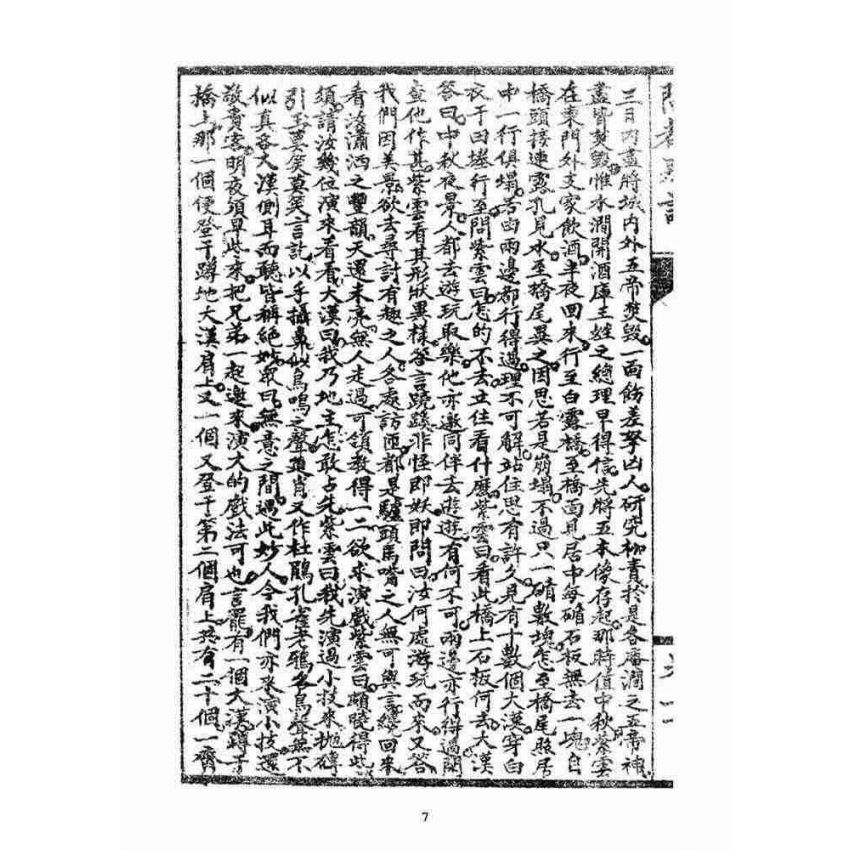 三日內盡將城內外五帝焚毀一面飭差拏凶人研究枷責於是各庵澗之五帝神
盡皆焚毀惟水澗開酒庫王姓之總理早得信先將五本像存起那時值中秋紫雲
在東門外支家飲酒半夜回來行至白露橋至橋面見居中每碏石板無去一塊自
橋頭接連露孔見水至橋尾異之因思若是崩塌不過只一碏數塊怎至橋尾照居
中一行俱塌若出兩邊都行得過理不可解站住思有許久見有十數個大漢穿白
衣于田塍行至問紫雲曰怎的不去立住看什麼紫雲曰看此橋上石板何去大漢
答曰中秋夜景人都去遊玩取樂他亦邀同伴去遊遊有何不可兩邊亦行得過閑
查他作甚紫雲看其形狀異樣答言蹺蹊非怪即妖即問曰汝何處游玩而來又答
我們因美景欲去尋討有趣之人各處訪匝都是驢頭馬嘴之人無可與言纔回來
看汝瀟洒之豐韻天還未亮無人走過可領教得一二欲求演戲紫雲曰頗曉得些
須請汝幾位演來看看大漢曰我乃地主怎敢占先紫雲曰我先演過小技來拋磚
引玉要笑莫笑言訖以手攝鼻似鳥鳴之聲逼肖又作杜鵑孔雀老鴉各鳥聲無不
似真各大漢側耳而聽皆稱絕妙眾曰無意之間遇此妙人今我們亦來演小技還
敬貴客明夜須早些來把兄弟一起邀來演大的戲法可也言罷有一個大漢蹲于
橋上那一個便登于蹲地大漢肩上又一個又登于第二個肩上共有二十個一齊
7